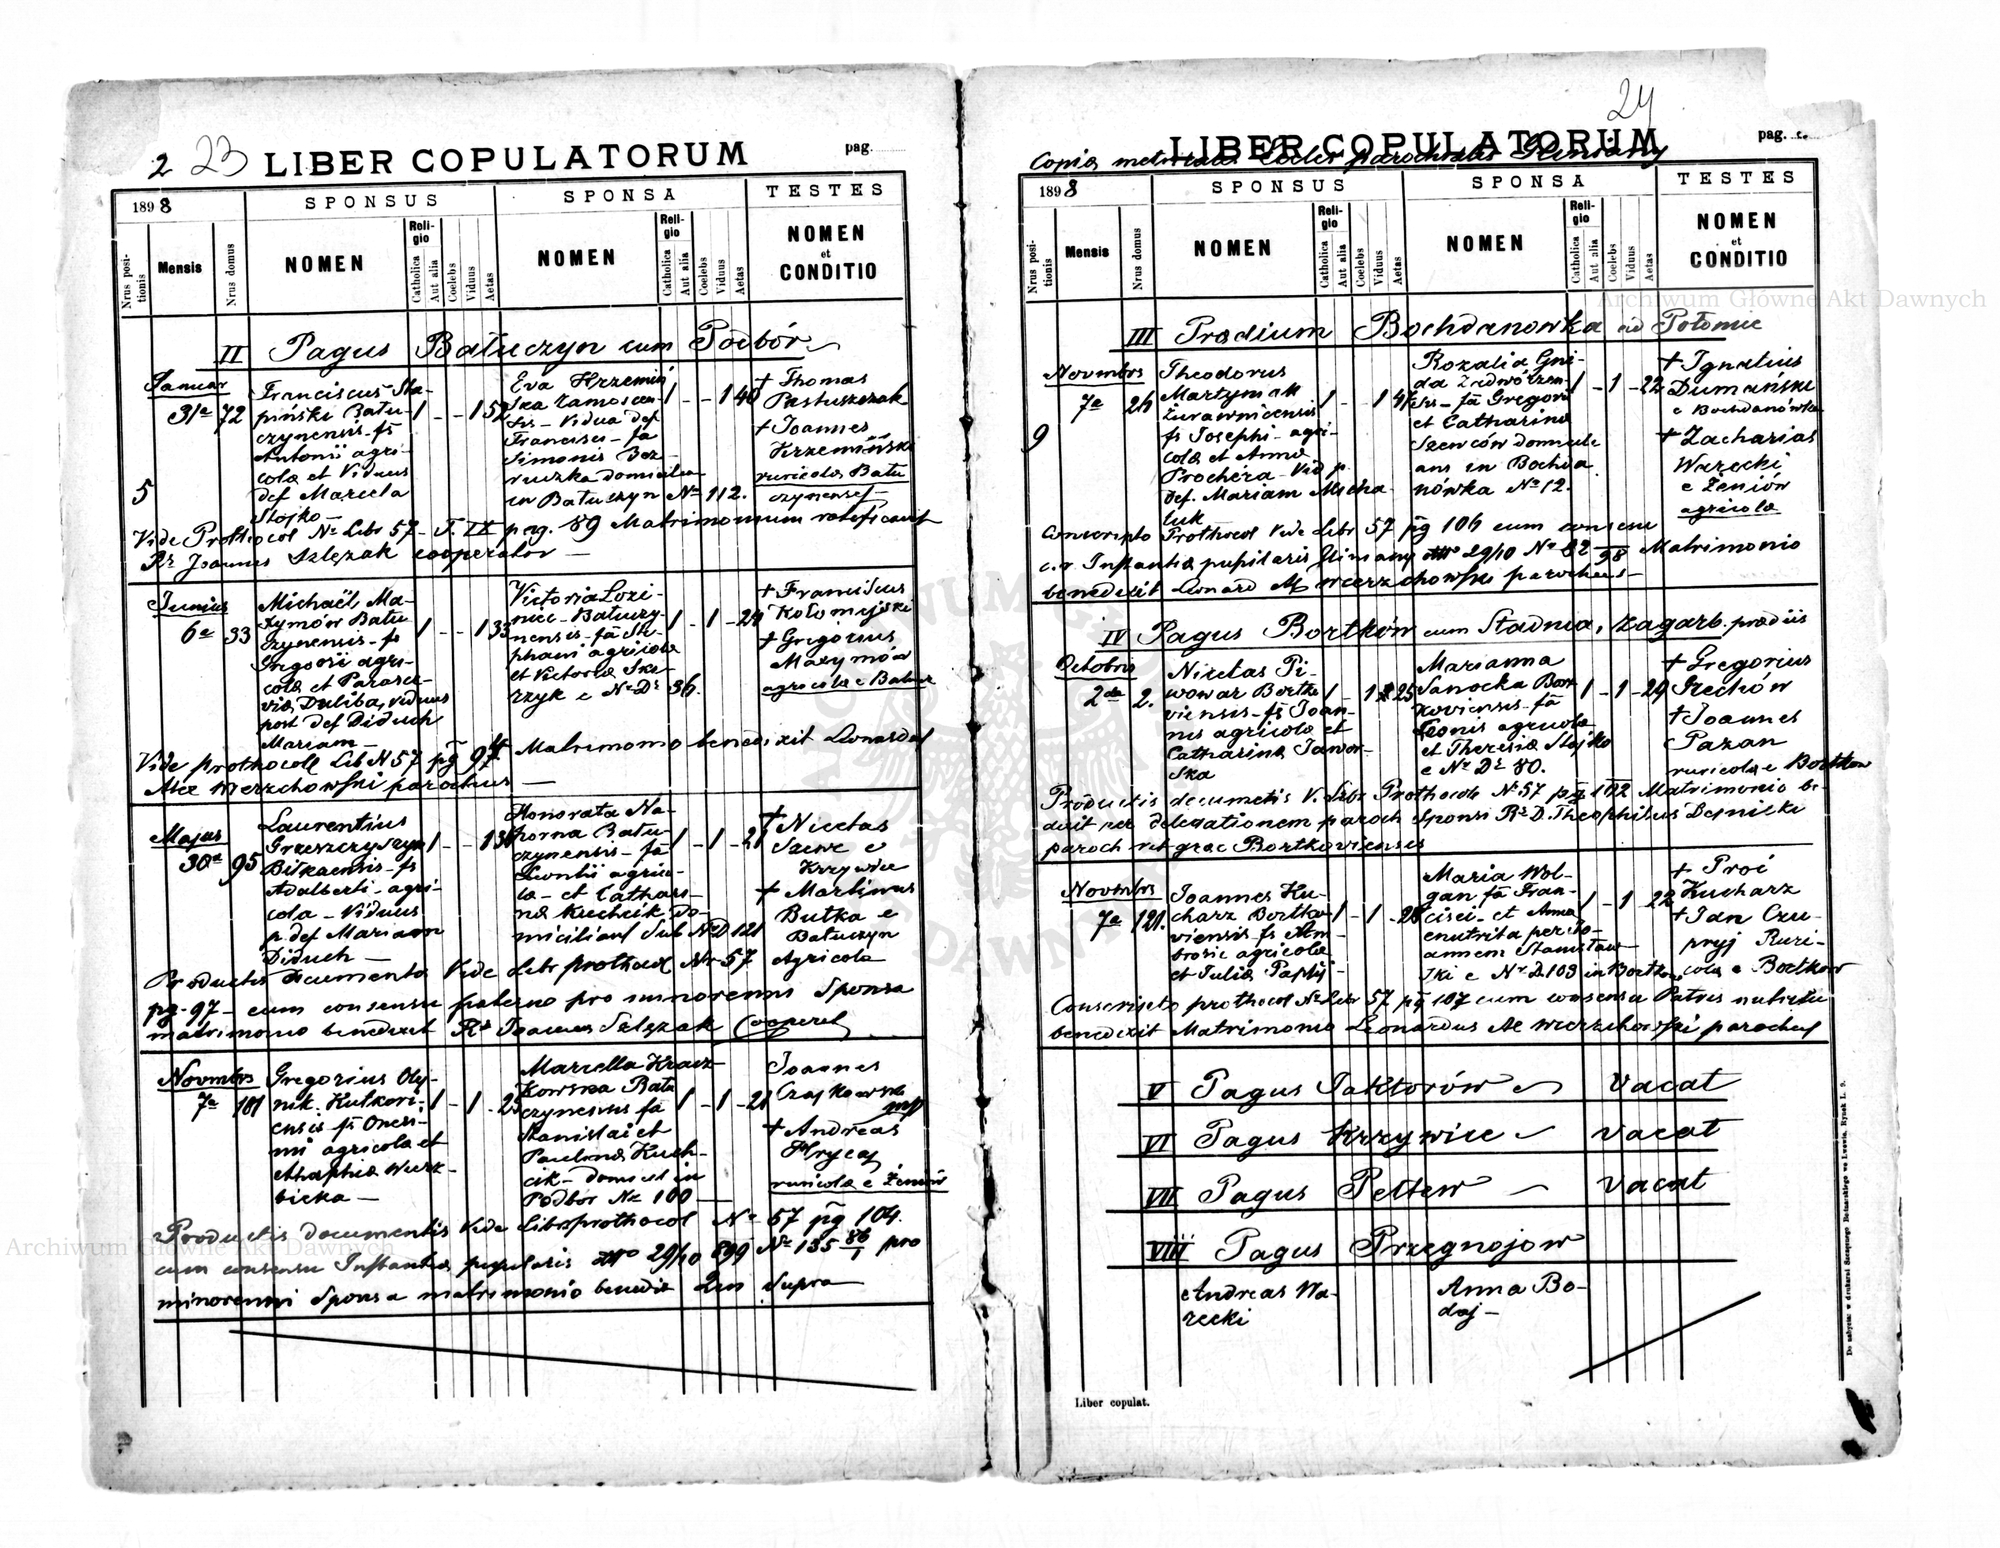 2 23 LIBER COPULATORUM pag.
1898
SPONSUS
SPONSA
TESTES
Nrus positionis
Mensis
Nrus domus
NOMEN
Religio
Catholica
Aut alia
Coelebs
Viduus
Aetas
NOMEN
Religio
Catholica
Aut alia
Coelebs
Viduus
Aetas
NOMEN
et
CONDITIO
II Pagus Batuczyn cum Podbór
5
Januar
31a 72
Franciscus Sta-
piński Batu-
czynensis fs
Antonii agri-
colæ et Viduus
def Mariela
Stojko
1 - - 1 52
Eva Krzemiń
ska Zamoscen
sis - Vidua def
Francisci - fa
Simonis Bez-
ruczka domicilia
in Batuczyn No 112.
1 - - 1 40
+ Thomas
Pastuszczak
+ Joannes
Krzemiński
ruricolæ Batu
czynenses
Vide Prothocol No Libr 57 - T. IX pag. 89 Matrimonium ratificavit
Rs Joannes Szlęzak cooperator
Junius
6a 33
Michaël Ma-
xymów Batu
czynensis - fs
Gregorii agri-
colæ et Parasce-
viæ Duliba, viduus
post def Diduch
Mariam
1 - - 1 33
Victoria Lozi-
niec - Batuczy-
nensis - fa Ste-
phani agricolæ
et Victoriæ Ska-
rzyk e No Ds 36.
1 - 1 - 24
+ Franciscus
Kołomyjski
+ Gregorius
Maxymów
agricolæ e Batucz
Vide prothocoll Lib N 57 pg 94 Matrimonio benedixit Leonardus
Ale Wierzchowski parochus
Majus
30a 95
Laurentius
Grzeszczyszyn
Biłkaensis - fs
Adalberti - agri-
cola - Viduus
p. def Mariam
Diduch
1 - - 1 36
Honorata Na-
horna Batu-
czynensis - fa
Leontii agrico-
læ - et Cathari-
næ Kuchcik, do-
miciliant sub No D 121
1 - 1 - 21
+ Nicetas
Szewc e
Krzywice
+ Martinus
Butka e
Batuczyn
Agricolæ
Productis documentis Vide Libr prothocol Nr 57
pg. 97 - cum consensu paterno pro minorenni Sponsa
matrimonio benedixit Rs Joannes Szlęzak Cooperat
Novmbrs
7a 101
Gregorius Oly-
nik. Kutkori-
ensis - fs Onesi-
mi agricolæ et
Ahaphiæ Wierz-
bicka
1 - 1 - 25
Marcella Kracz-
kowska Batu
czynensis fa
Stanislai et
Paulinæ Kuch-
cik - domest in
Podbór No 100
1 - 1 - 21
Joannes
Czajkowski
+ Andreas
Hrycaj
ruricolæ e Zeniów
Productis documentis Vide Libr prothocol No 57 pg 104.
cum consensu Instantiæ pupilaris dto 29/10 899 No 135 86/1 pro
minorenni Sponsa matrimonio benedix Qui Supra
24
LIBER COPULATORUM pag.
Copia metricalis Eccles parochialis Gliniany
1898
SPONSUS
SPONSA
TESTES
Nrus positionis
Mensis
Nrus domus
NOMEN
Religio
Catholica
Aut alia
Coelebs
Viduus
Aetas
NOMEN
Religio
Catholica
Aut alia
Coelebs
Viduus
Aetas
NOMEN
et
CONDITIO
III Prædium Bochdanowka ad Połonic
9
Novmbrs
7a 26
Theodorus
Martyniak
Żurawnicensis
fs Josephi - agri-
colæ et Annæ
Prochera - Vid p.
def. Mariam Micha-
luk
1 - - 1
Rozalia Gni-
da Zadwórzen-
sis - fa Gregorii
et Catharinæ
Szewców domicili-
ans in Bochda
nówka No 12.
1 - 1 - 22
+ Ignatius
Dumański
e Bochdanówka
+ Zacharias
Warecki
e Zeniów
agricolæ
Conscripto Prothocol Vide Libr 57 pg 106 cum consensu
c. r Instantiæ pupilaris Gliniany dto 29/10 No 82/98 Matrimonio
benedixit Leonard Al Wierzchowski parochus
IV Pagus Bortków cum Stadnia, Zagarb. prædiis
Octobrs
2da 2.
Nicetas Pi-
wowar Bortko
viensis - fs Joan-
nis agricolæ et
Catharinæ Jawor-
ska
1 - 1 25
Marianna
Sanocka Bort
koviensis - fa
Leonis agricolæ
et Theresiæ Stojko
e No Ds 80.
1 - 1 - 29
+ Gregorius
Irechów
+ Joannes
Pazan
ruricolæ e Bortkow
Productis documetis V. Libr Prothocole No 57 pg 102 Matrimonio be-
dixit per delegationem paroch Sponsi Rs D. Theophilus Dejnicki
paroch rit græc Bortkoviensis
Novmbrs
7a 121.
Joannes Ku-
charz Bortko
viensis - fs Am-
brosii agricolæ
et Juliæ Paptij
1 - 1 - 28
Maria Wol-
gan fa Fran-
cisci - et Anna
enutrita per Jo-
annem Stanisław-
ski e No D 103 in Bortkow
1 - 1 - 22
+ Proc
Kucharz
+ Jan Czu-
pryj Ruri-
colæ e Bortkow
Conscripto prothocol No Libr 57 pg 107 cum consensu Patris nutritu
benedixit Matrimonio Leonardus Al Wierzchowski parochus
V Pagus Jaktorów Vacat
VI Pagus Krzywice Vacat
VII Pagus Peltew Vacat
VIII Pagus Przegnojow
Andreas Wa-
recki
Anna Bo-
daj
Liber copulat.
Do nabycia: w drukarni Szczęsnego Bednarskiego we Lwowie, Rynek l. 9.
Archiwum Główne Akt Dawnych
Archiwum Główne Akt Dawnych
ARCHIWUM GŁÓWNE AKT DAWNYCH